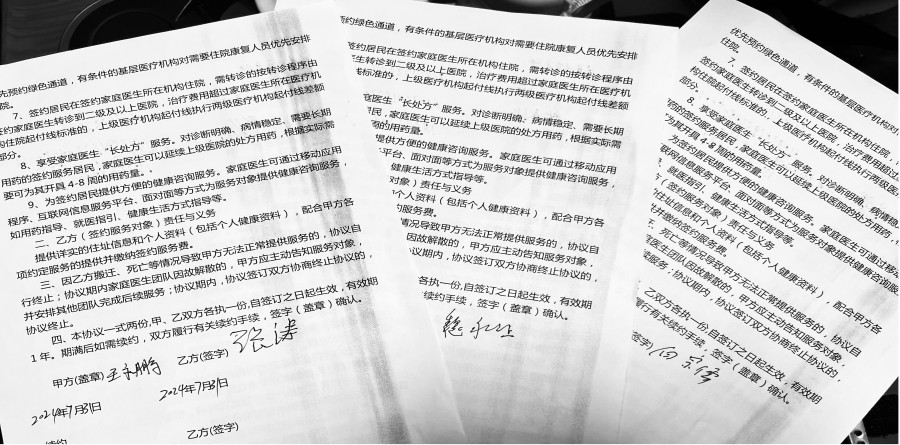 先预约绿色通道，有条件的基层医疗机构对需要住院康复人员优先安排
院。
7、签约居民在签约家庭医生所在机构住院，需转诊的按转诊程序由
约家庭医生转诊到二级及以上医院，治疗费用超过家庭医生所在医疗机
构住院起付线标准的，上级医疗机构起付线执行两级医疗机构起付线差额
部分。
8、享受家庭医生“长处方”服务。对诊断明确、病情稳定、需要长期
用药的签约服务居民，家庭医生可以延续上级医院的处方用药，根据实际需
要可为其开具 4-8 周的用药量。
9、为签约居民提供方便的健康咨询服务。家庭医生可通过移动应用
程序、互联网信息服务平台、面对面等方式为服务对象提供健康咨询服务，
如用药指导、就医指引、健康生活方式指导等。
二、乙方（签约服务对象）责任与义务
提供详实的住址信息和个人资料（包括个人健康资料），配合甲方各
项约定服务的提供并缴纳签约服务费。
三、因乙方搬迁、死亡等情况导致甲方无法正常提供服务的，协议自
行终止；协议期内家庭医生团队因故解散的，甲方应主动告知服务对象，
并安排其他团队完成后续服务；协议期内，协议签订双方协商终止协议的，
协议终止。
四、本协议一式两份,甲、乙双方各执一份,自签订之日起生效，有效期
1 年。期满后如需续约，双方履行有关续约手续，签字（盖章）确认。
甲方(盖章)
乙方(签字) 张涛
2024年7月31日
2024年7月31日
续约
乙方(签字)
预约绿色通道，有条件的基层医疗机构对需要住院康复人员优先安排
签约居民在签约家庭医生所在机构住院，需转诊的按转诊程序由
生转诊到二级及以上医院，治疗费用超过家庭医生所在医疗机
线标准的，上级医疗机构起付线执行两级医疗机构起付线差额
庭医生“长处方”服务。对诊断明确、病情稳定、需要长期
民，家庭医生可以延续上级医院的处方用药，根据实际需
周的用药量。
提供方便的健康咨询服务。家庭医生可通过移动应用
平台、面对面等方式为服务对象提供健康咨询服务，
健康生活方式指导等。
对象）责任与义务
个人资料（包括个人健康资料），配合甲方各
约服务费。
情况导致甲方无法正常提供服务的，协议自
因故解散的，甲方应主动告知服务对象，
协议期内，协议签订双方协商终止协议的，
各执一份,自签订之日起生效，有效期
续约手续，签字（盖章）确认。
优先预约绿色通道，有条件的基层医疗机构对
住院。
7、签约居民在签约家庭医生所在机构住院，
签约家庭医生转诊到二级及以上医院，治疗费用超过
构住院起付线标准的，上级医疗机构起付线执行两级
部分。
8、享受家庭医生“长处方”服务。对诊断明确、病情稳
约的签约服务居民，家庭医生可以延续上级医院的处方用药，
为其开具 4-8 周的用药量。
为签约居民提供方便的健康咨询服务。家庭医生可通过移
联网信息服务平台、面对面等方式为服务对象提供健康咨询服
就医指引、健康生活方式指导等。
（签约服务对象）责任与义务
住址信息和个人资料（包括个人健康资料），配合甲方各
并缴纳签约服务费。
、死亡等情况导致甲方无法正常提供服务的，协议自
庭医生团队因故解散的，甲方应主动告知服务对象，
续服务；协议期内，协议签订双方协商终止协议的，
乙双方各执一份,自签订之日起生效，有效期
履行有关续约手续，签字（盖章）确认。
签字)